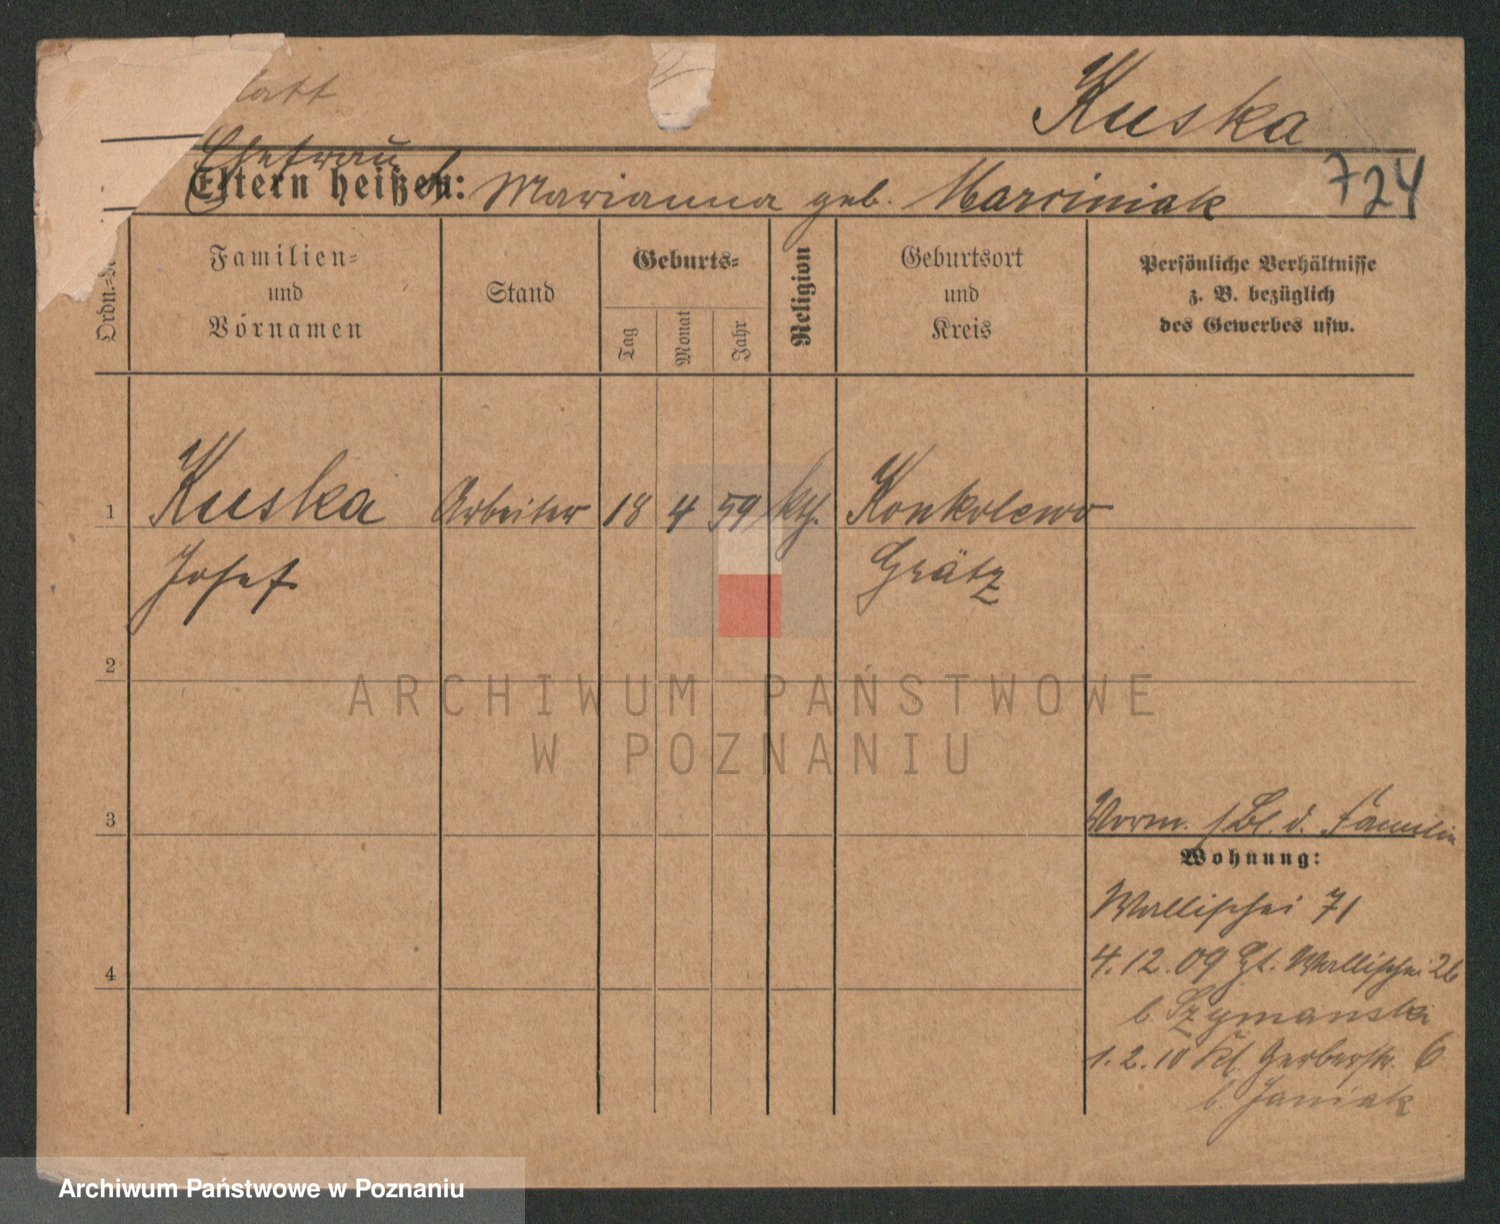 Kuska
Ehefrau
Eltern heißen: Marianna geb. Marciniak
724
Ordn.-
Familien-
und
Vornamen
Stand
Geburts-
Tag
Monat
Jahr
Religion
Geburtsort
und
Kreis
Persönliche Verhältnisse
z. B. bezüglich
des Gewerbes usw.
1 Kuska Arbeiter 18 4 59 kth. Konkolewo
Josef Grätz
2
3
Vorm. s. Bl. d. Familie
Wohnung:
Wallischei 71
4
4.12.09 Wallischei 26
b. Szymanski
1.2.10 Kl. Gerberstr. 6
b. Janiak
ARCHIWUM PAŃSTWOWE
W POZNANIU
Archiwum Państwowe w Poznaniu